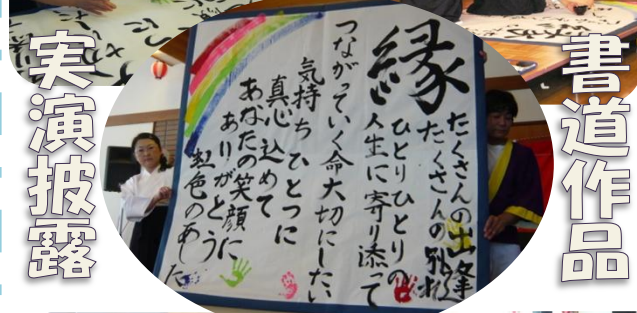 書道作品
縁
たくさんの出
たくさんの
ひとりひとりの
人生に寄り添って
つながっていく命大切にしたい
気持ちひとつに
真心込めて
あなたの笑顔に
ありがとう
虹色のあした
実演披露